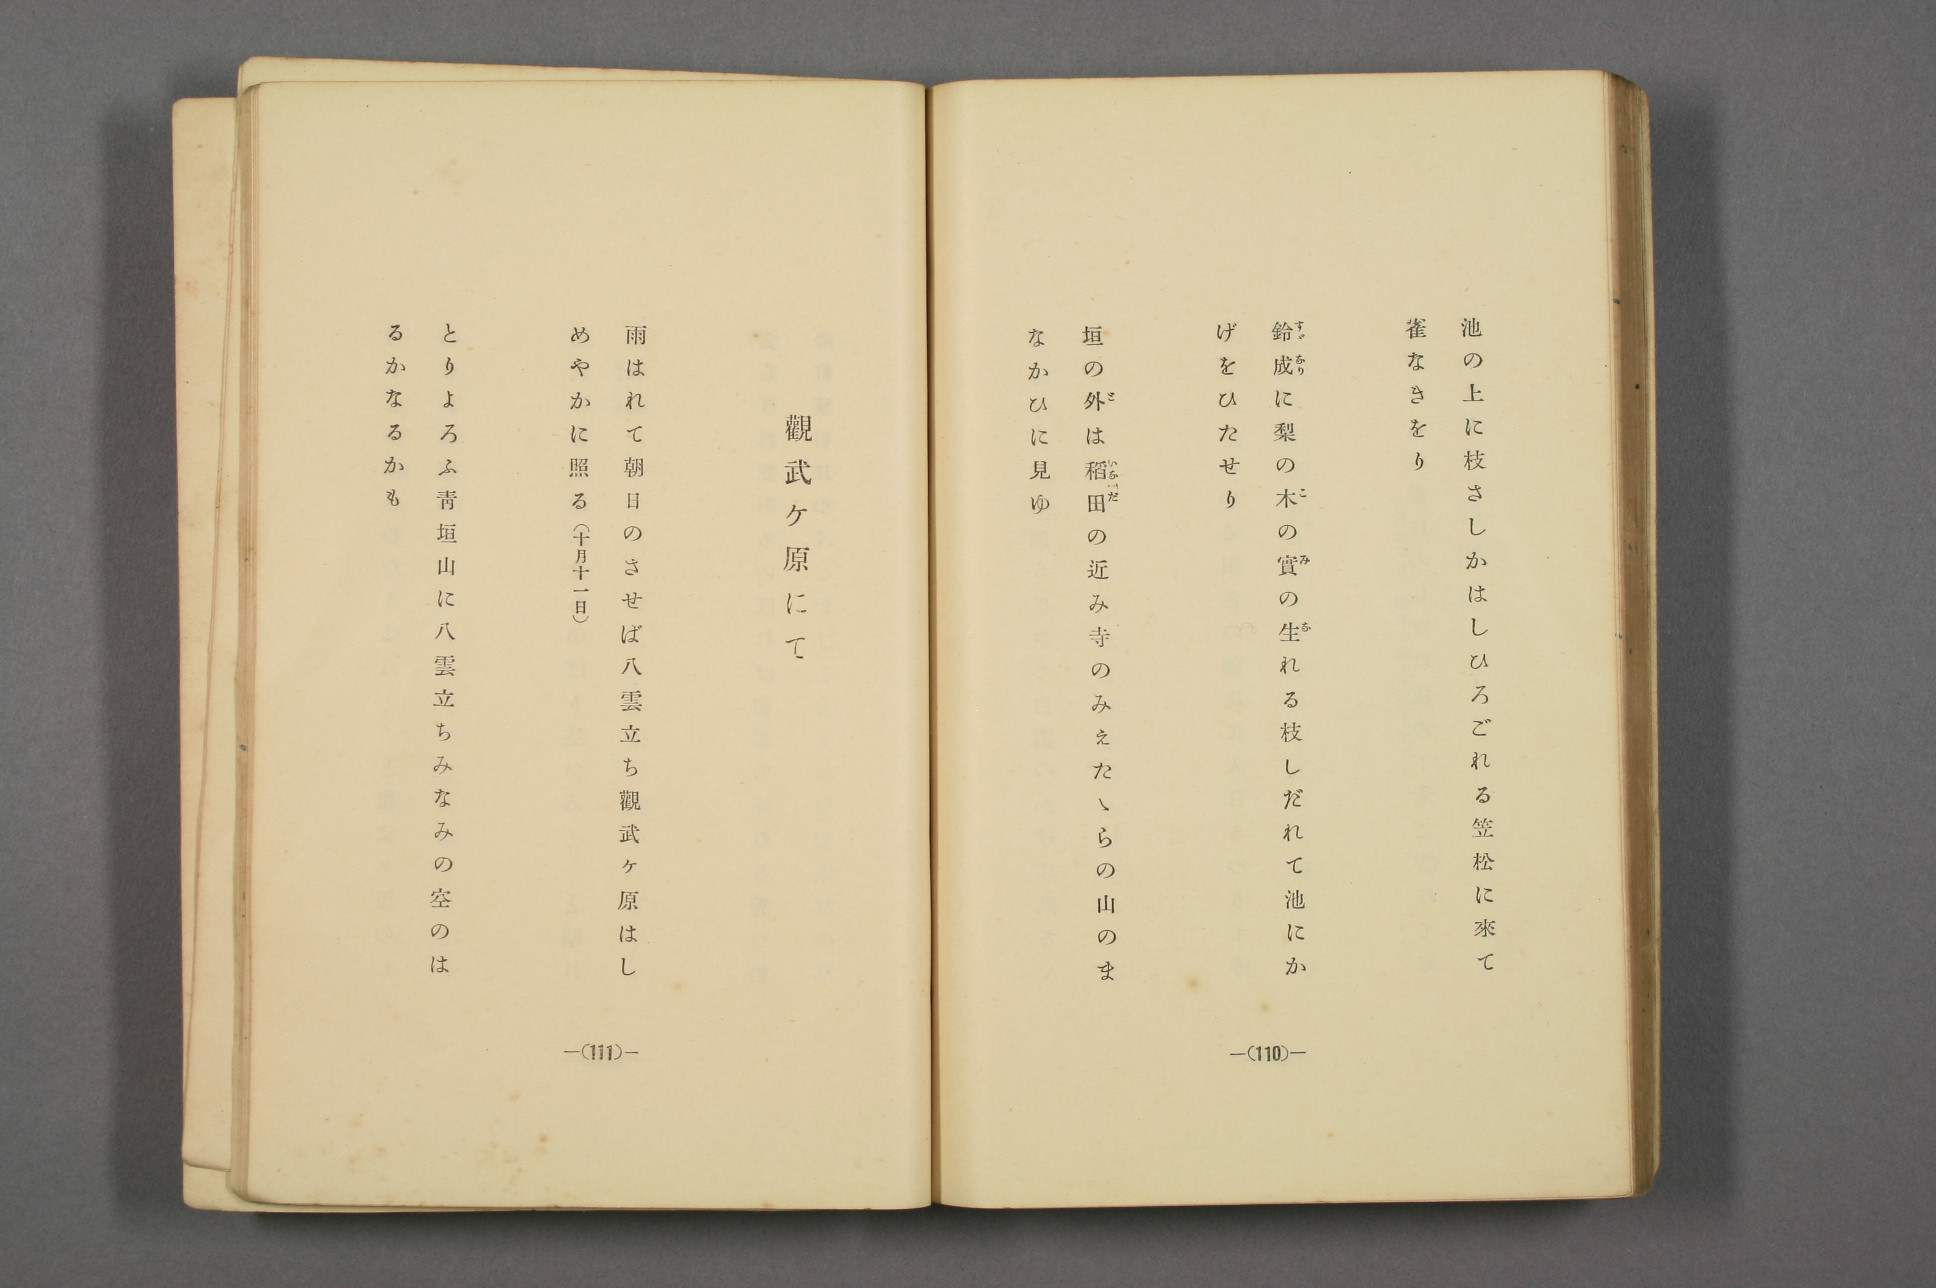 池の上に枝さしかはしひろごれる笠松に來て
雀なきをり
鈴成に梨の木の實の生れる枝しだれて池にか
げをひたせり
垣の外は稻田の近み寺のみえたヽらの山のま
なかひに見ゆ
―(110)―
觀武ケ原にて
雨はれて朝日のさせば八雲立ち觀武ケ原はし
めやかに照る(十月十一日)
とりよろふ靑垣山に八雲立ちみなみの空のは
るかなるかも
―(111)―